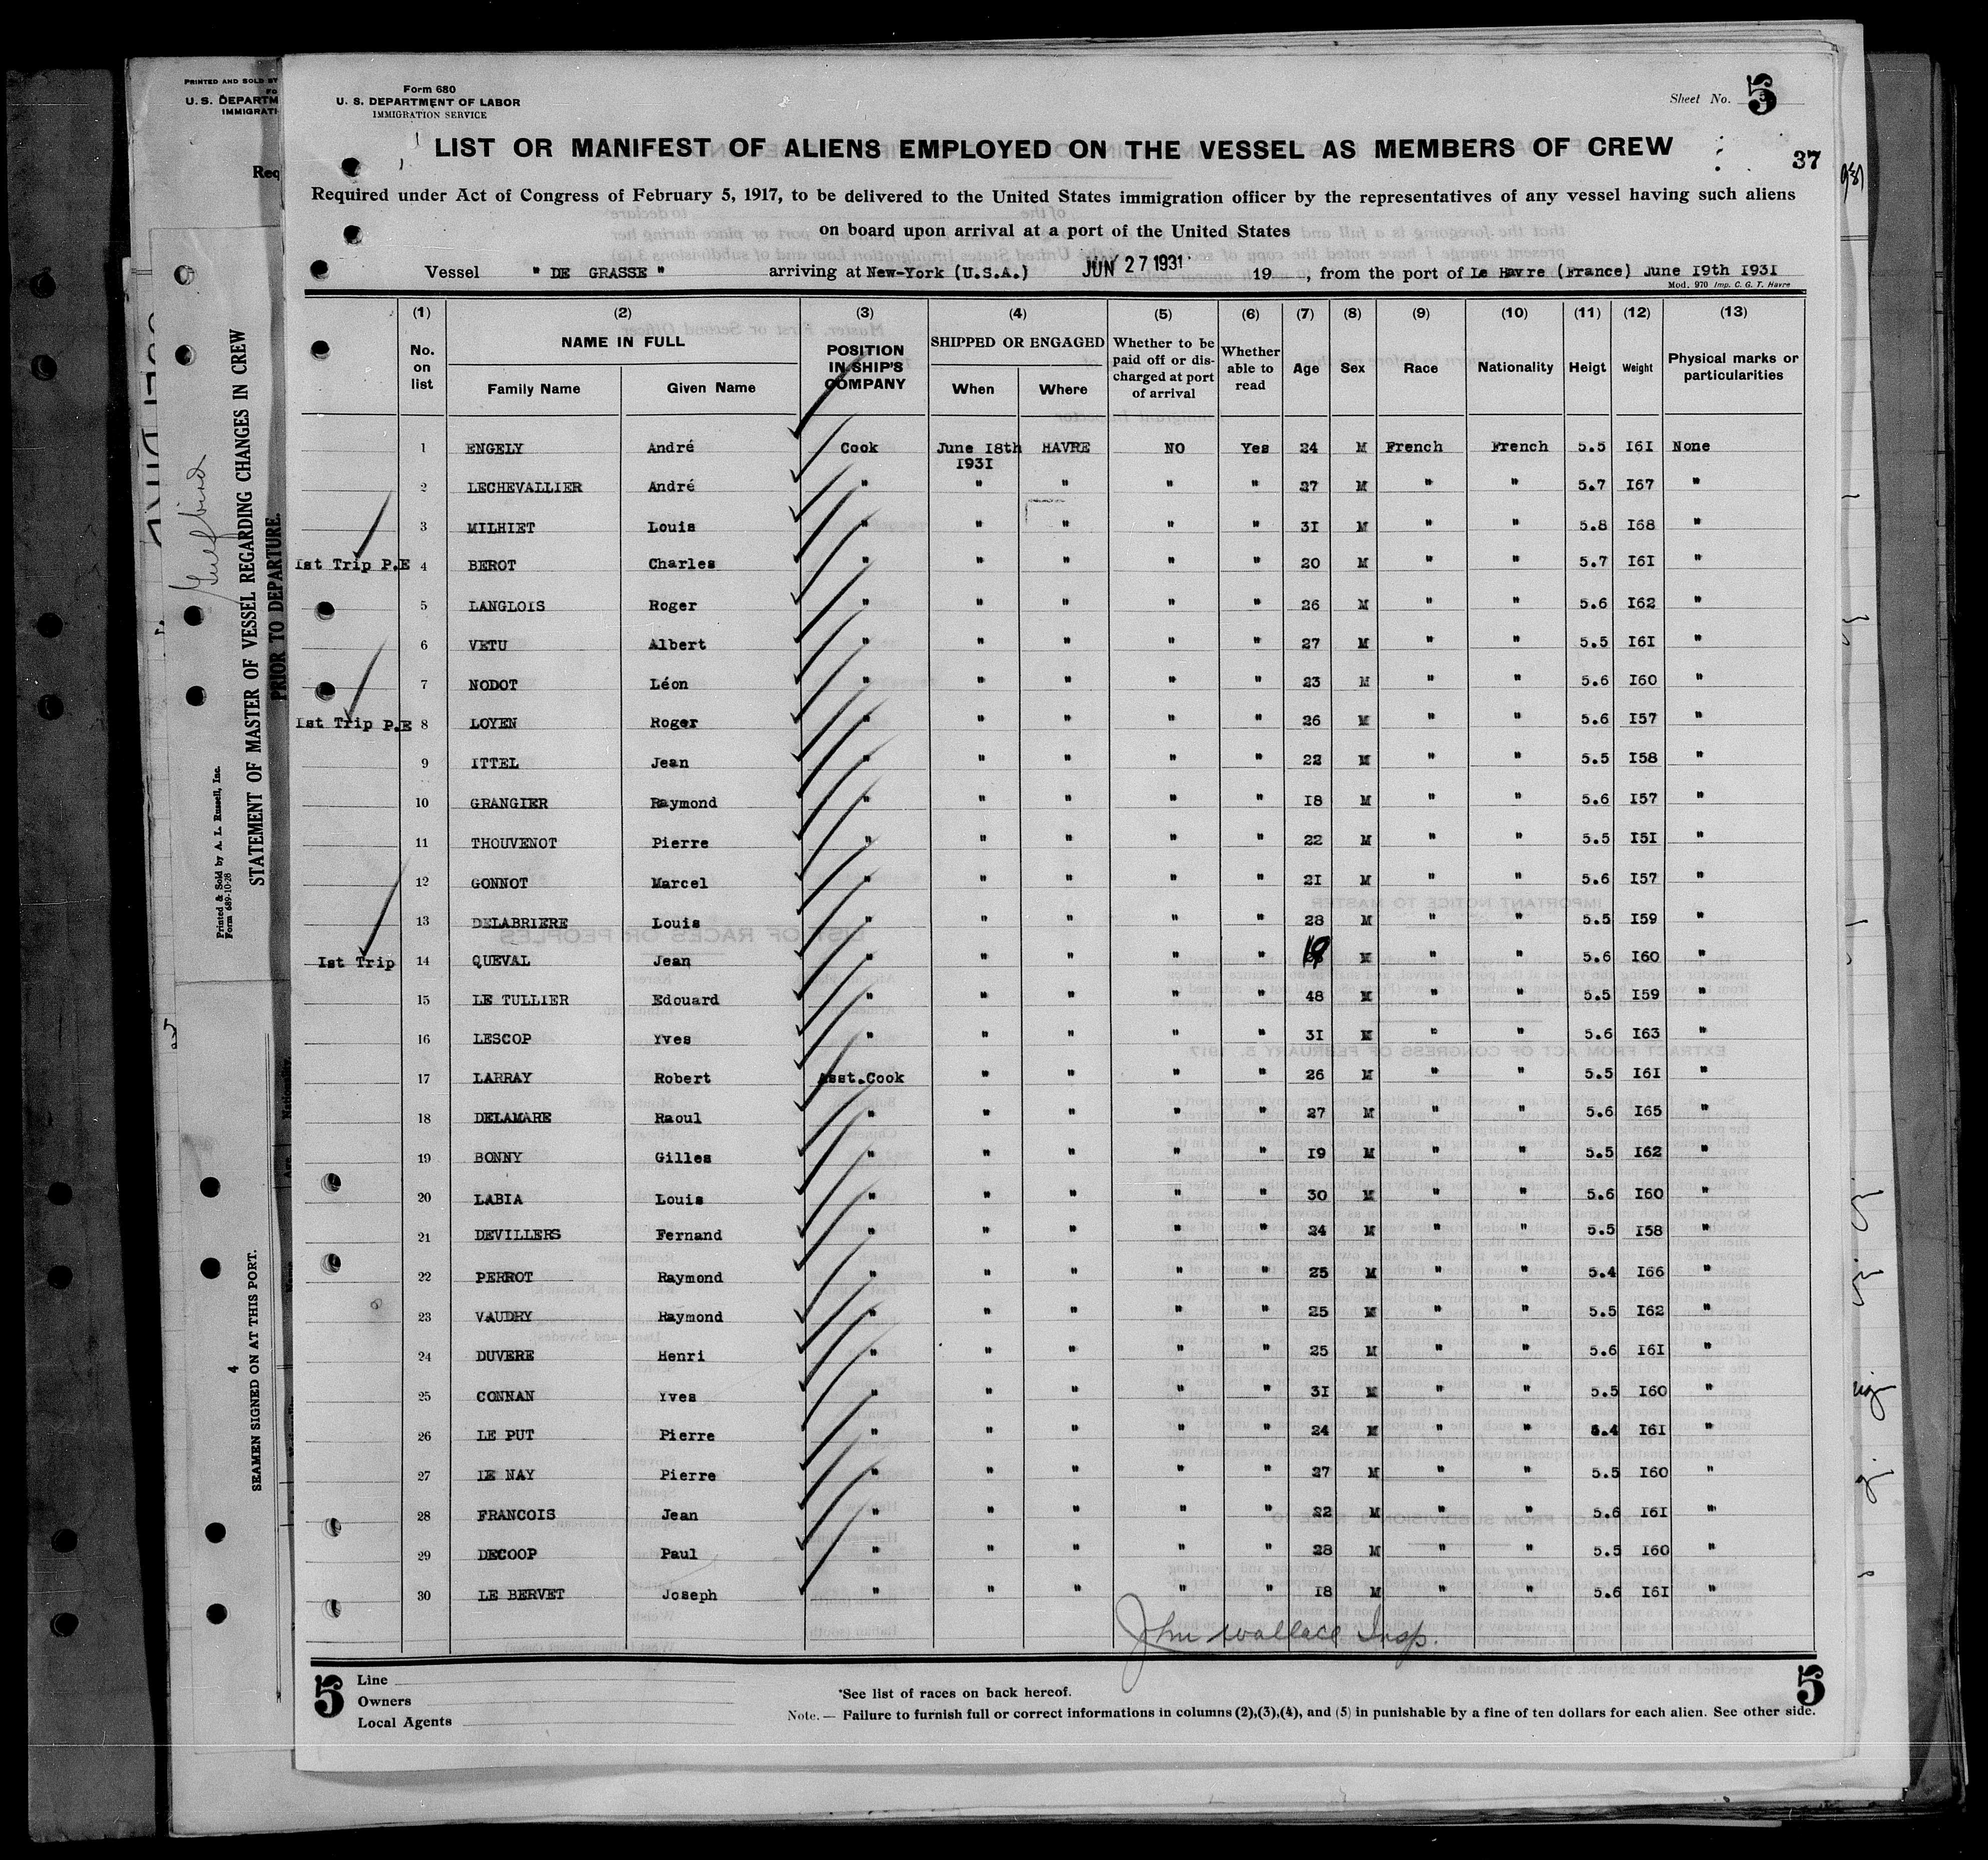 PRINTED AND SOLD BY
FO
U. S. DEPARTM
IMMIGRATI
Req
Printed & Sold by A. L. Russell, Inc.
Form 689-10-28
STATEMENT OF MASTER OF VESSEL REGARDING CHANGES IN CREW
PRIOR TO DEPARTURE.
4
SEAMEN SIGNED ON AT THIS PORT.
Form 680
U. S. DEPARTMENT OF LABOR
IMMIGRATION SERVICE
Sheet No. 5
LIST OR MANIFEST OF ALIENS EMPLOYED ON THE VESSEL AS MEMBERS OF CREW
37
Required under Act of Congress of February 5, 1917, to be delivered to the United States immigration officer by the representatives of any vessel having such aliens
on board upon arrival at a port of the United States
Vessel " DE GRASSE " arriving at New-York (U.S.A.) JUN 27 1931 19 , from the port of Le Havre (France) June I9th I93I
Mod. 970 Imp. C. G. T. Havre
(1) (2) (3) (4) (5) (6) (7) (8) (9) (10) (11) (12) (13)
No. on list NAME IN FULL Family Name Given Name POSITION IN SHIP'S COMPANY SHIPPED OR ENGAGED When Where Whether to be paid off or discharged at port of arrival Whether able to read Age Sex Race Nationality Heigt Weight Physical marks or particularities
1 ENGELY André Cook June I8th I93I HAVRE NO Yes 24 M French French 5.5 I6I None
2 LECHEVALLIER André " " " " " 27 M " " 5.7 I67 "
3 MILHIET Louis " " " " " 3I M " " 5.8 I68 "
Ist Trip P.E 4 BEROT Charles " " " " " 20 M " " 5.7 I6I "
5 LANGLOIS Roger " " " " " 26 M " " 5.6 I62 "
6 VETU Albert " " " " " 27 M " " 5.5 I6I "
7 NODOT Léon " " " " " 23 M " " 5.6 I60 "
Ist Trip P.E 8 LOYEN Roger " " " " " 26 M " " 5.6 I57 "
9 ITTEL Jean " " " " " 22 M " " 5.5 I58 "
10 GRANGIER Raymond " " " " " I8 M " " 5.6 I57 "
11 THOUVENOT Pierre " " " " " 22 M " " 5.5 I5I "
12 GONNOT Marcel " " " " " 2I M " " 5.6 I57 "
13 DELABRIERE Louis " " " " " 28 M " " 5.5 I59 "
Ist Trip 14 QUEVAL Jean " " " " " 19 M " " 5.6 I60 "
15 LE TULLIER Edouard " " " " " 48 M " " 5.5 I59 "
16 LESCOP Yves " " " " " 3I M " " 5.6 I63 "
17 LARRAY Robert Asst.Cook " " " " 26 M " " 5.5 I6I "
18 DELAMARE Raoul " " " " " 27 M " " 5.6 I65 "
19 BONNY Gilles " " " " " I9 M " " 5.5 I62 "
20 LABIA Louis " " " " " 30 M " " 5.6 I60 "
21 DEVILLERS Fernand " " " " " 24 M " " 5.5 I58 "
22 PERROT Raymond " " " " " 25 M " " 5.4 I66 "
23 VAUDRY Raymond " " " " " 25 M " " 5.5 I62 "
24 DUVERE Henri " " " " " 25 M " " 5.6 I6I "
25 CONNAN Yves " " " " " 3I M " " 5.5 I60 "
26 LE PUT Pierre " " " " " 24 M " " 5.4 I6I "
27 LE NAY Pierre " " " " " 27 M " " 5.5 I60 "
28 FRANCOIS Jean " " " " " 22 M " " 5.6 I6I "
29 DECOOP Paul " " " " " 28 M " " 5.5 I60 "
30 LE BERVET Joseph " " " " " I8 M " " 5.6 I6I "
John Wallace Insp.
5
Line
Owners
Local Agents
*See list of races on back hereof.
Note. — Failure to furnish full or correct informations in columns (2),(3),(4), and (5) in punishable by a fine of ten dollars for each alien. See other side.
5